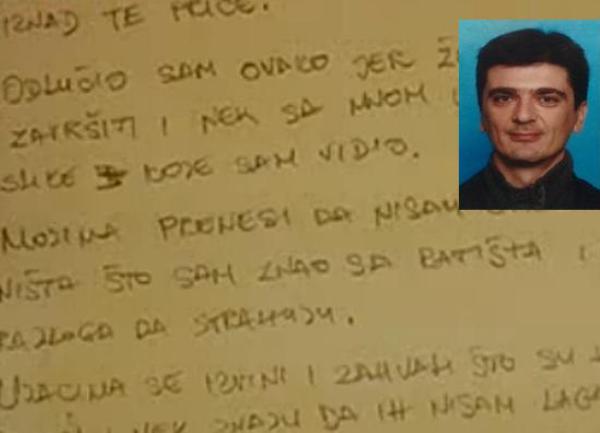 IZNAD TE PRIČE.
ODLUČIO SAM OVAKO JER
ZAVRŠITI I NEK SA MNOM
SLIKE KOJE SAM VIDIO.
MOJIMA PRENESI DA NISAM
NIŠTA ŠTO SAM ZNAO SA RATIŠTA I
RAZLOGA DA STRAHUJU.
UJACIMA SE IZVINI I ZAHVALI ŠTO SU
I NEK ZNAJU DA IH NISAM